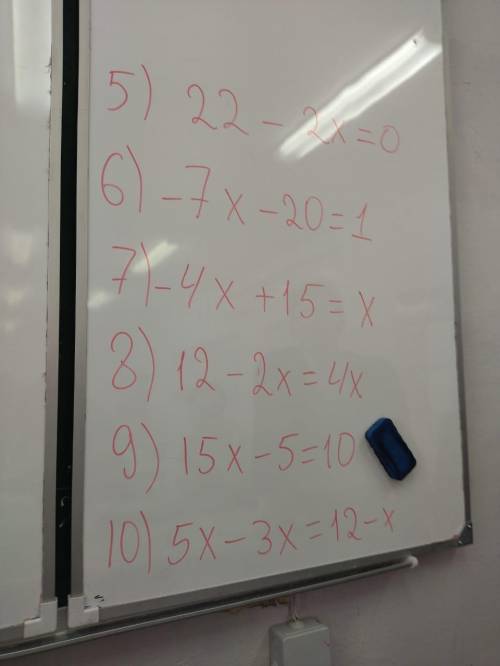 5) 22 - 2x = 0
6) -7x - 20 = 1
7) -4x + 15 = x
8) 12 - 2x = 4x
9) 15x - 5 = 10
10) 5x - 3x = 12 - x